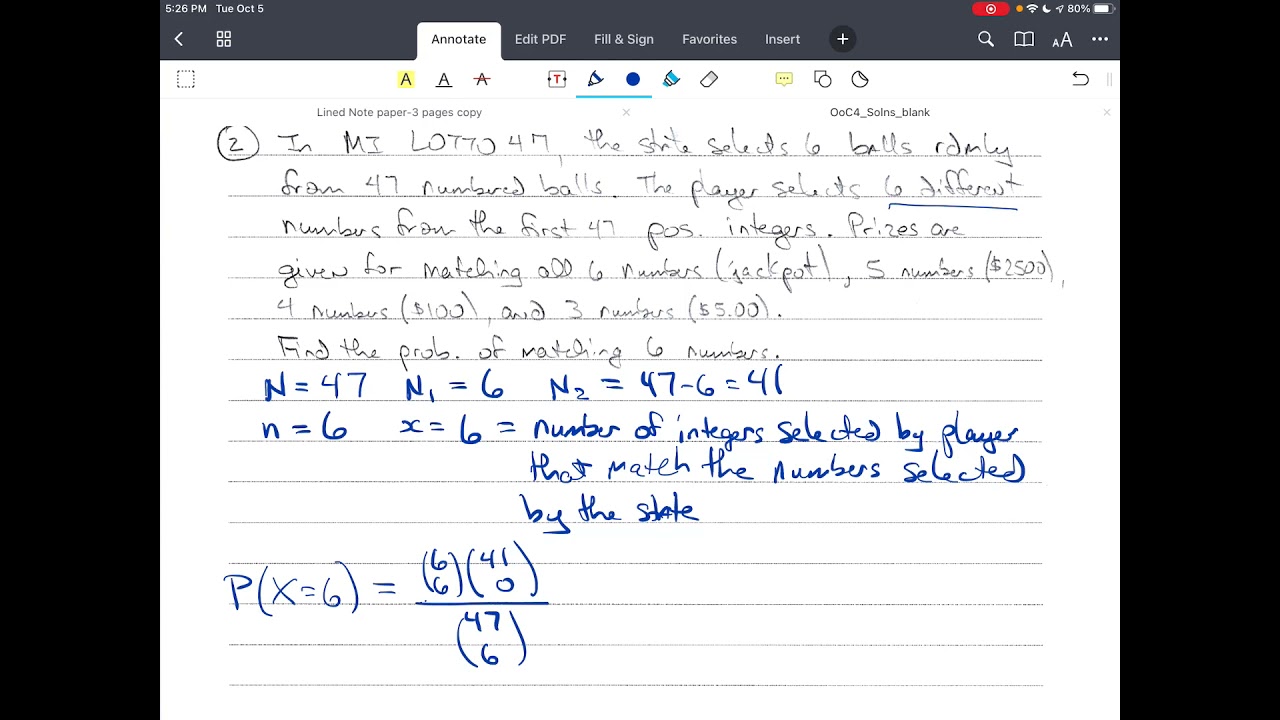 5:26 PM Tue Oct 5
80%
Annotate Edit PDF Fill & Sign Favorites Insert
A A A T
Lined Note paper-3 pages copy × OoC4_Solns_blank ×
② In MI LOTTO 47, the state selects 6 balls rdmly
from 47 numbered balls. The player selects 6 different
numbers from the first 47 pos. integers. Prizes are
given for matching all 6 numbers (jackpot), 5 numbers ($2500),
4 numbers ($100), and 3 numbers ($5.00).
Find the prob. of matching 6 numbers.
N = 47 N₁ = 6 N₂ = 47-6 = 41
n = 6 x = 6 = number of integers selected by player
that match the numbers selected
by the state
P(X=6) = (6 6)(41 0)
(47 6)